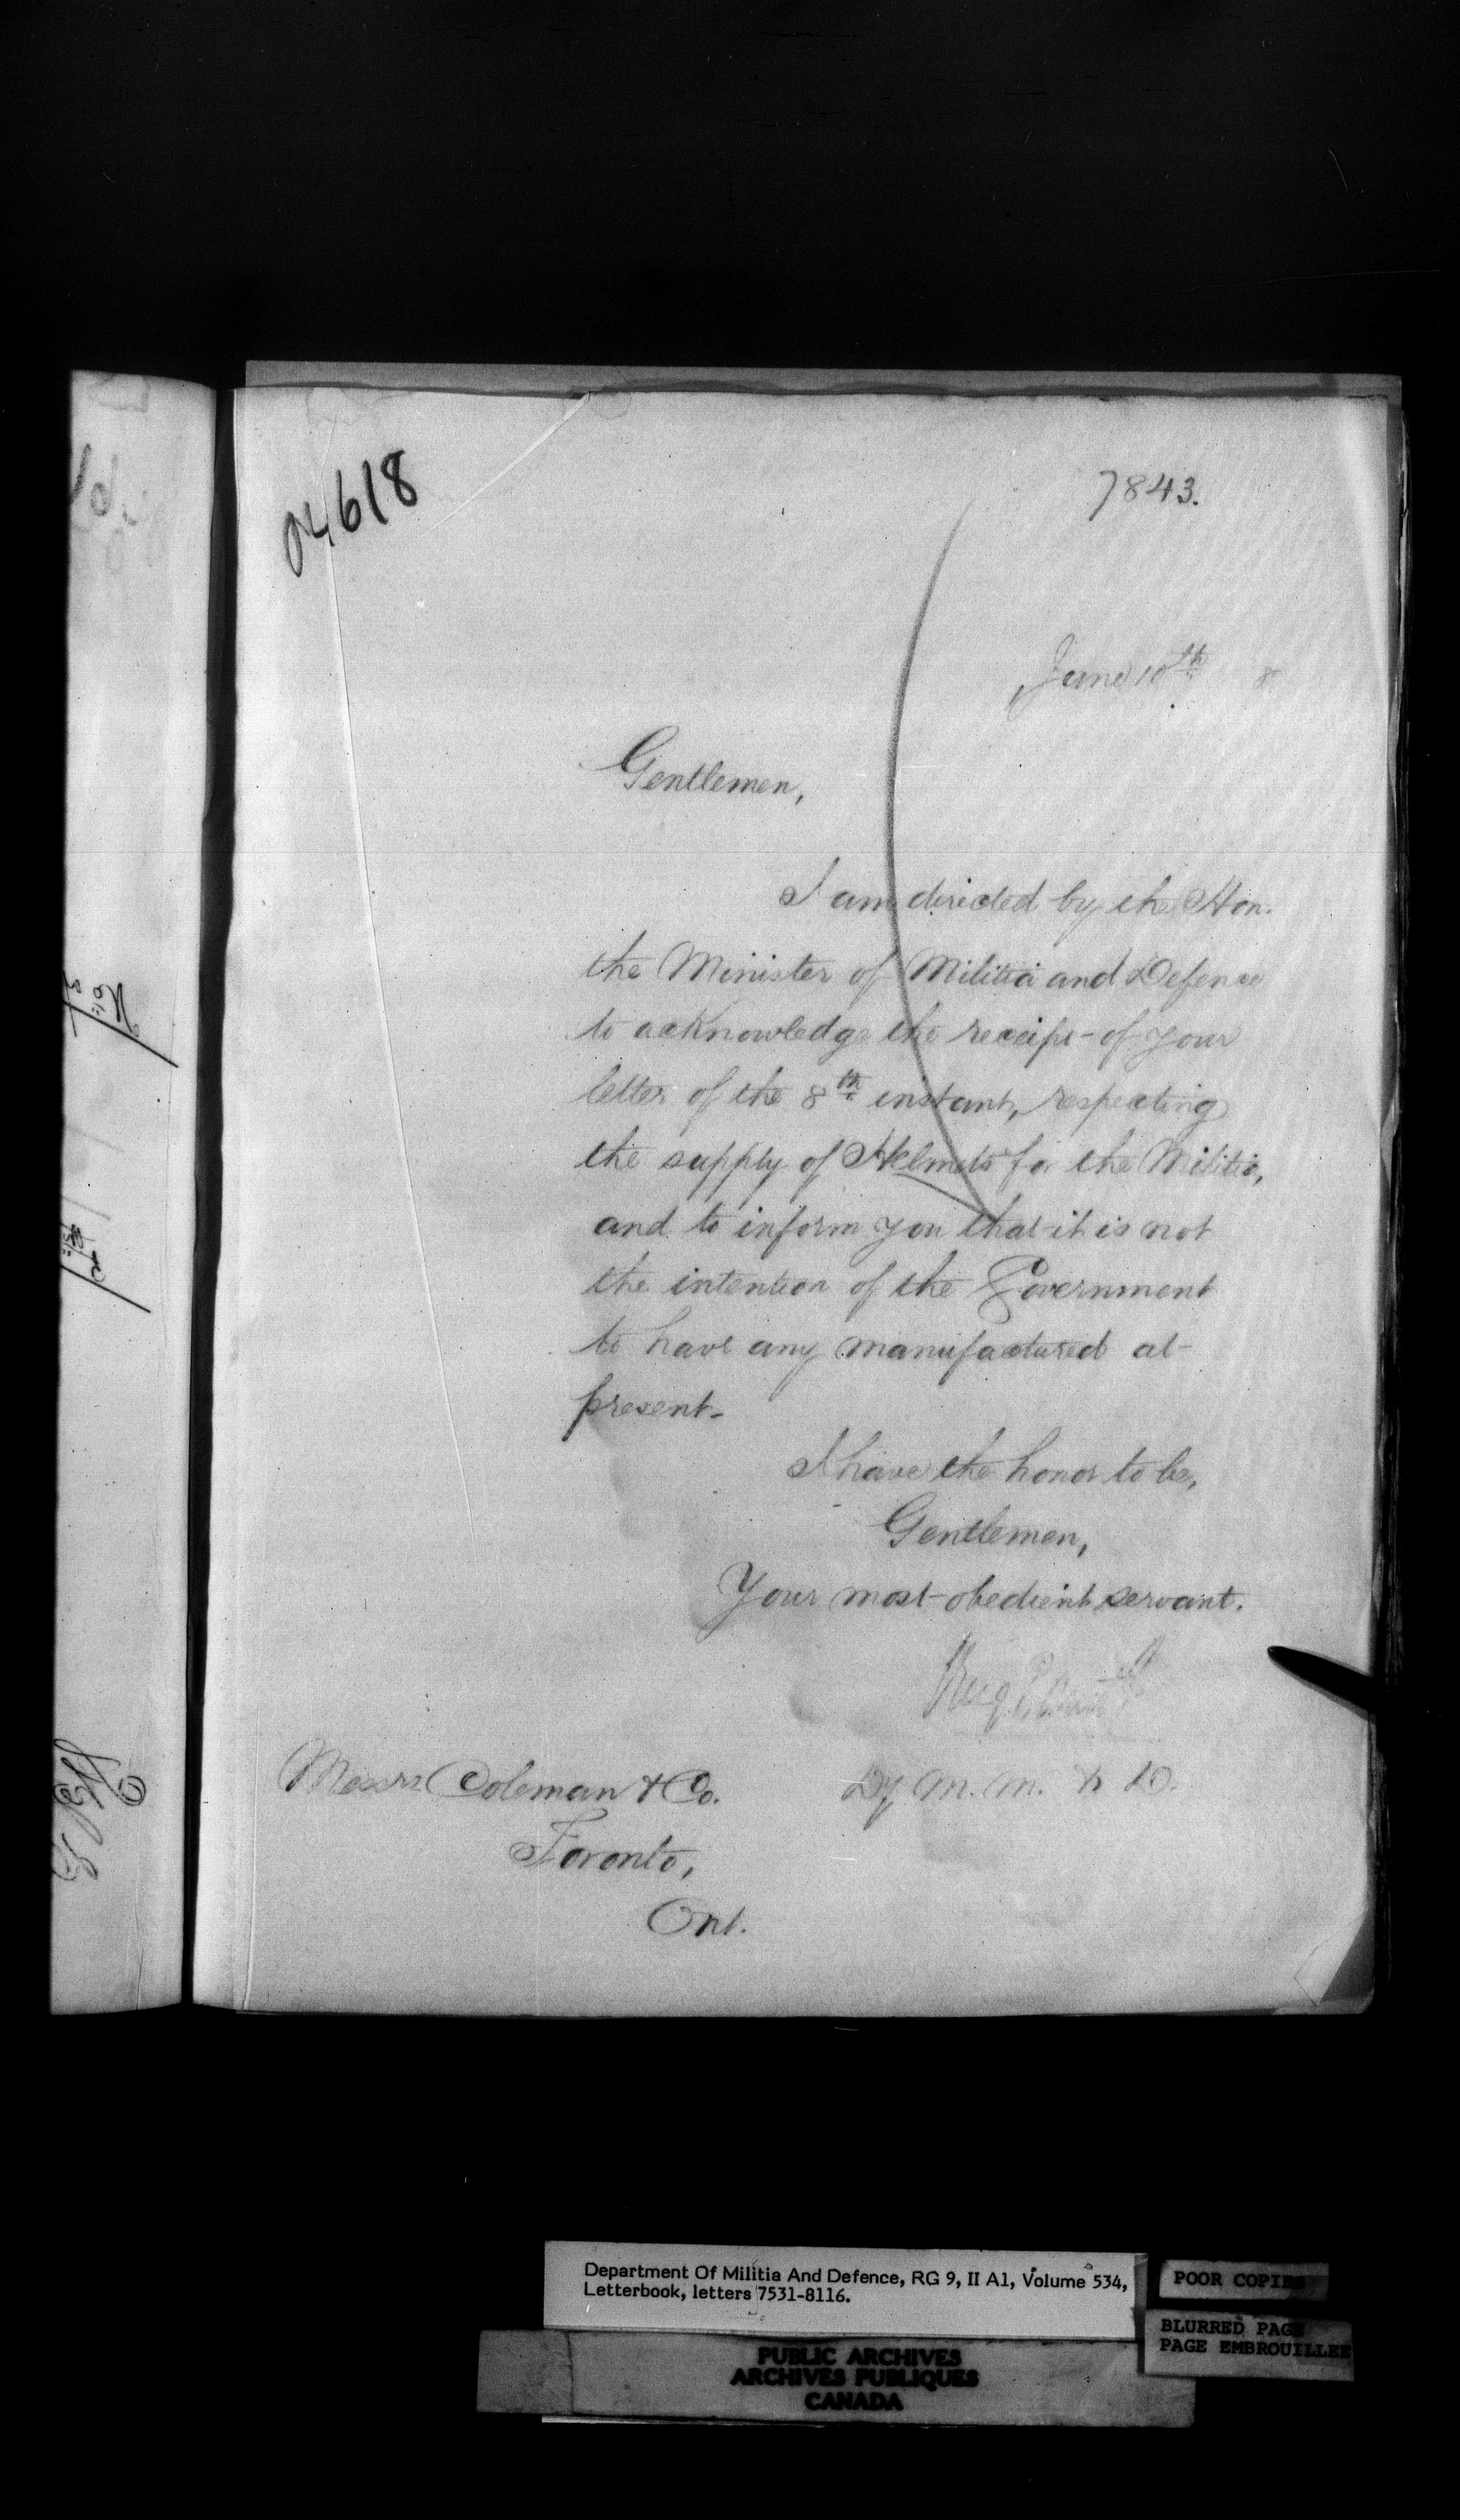 04618
7843.
June 10th 8
Gentlemen,
I am directed by the Hon.
the Minister of Militia and Defence
to acknowledge the receipt of your
letter of the 8th instant, respecting
the supply of Helmets for the Militia,
and to inform you that it is not
the intention of the Government
to have any manufactured at
present.
I have the honor to be,
Gentlemen,
Your most obedient servant.
Dy M. M. & D.
Messrs Coleman & Co.
Toronto,
Ont.
Department Of Militia And Defence, RG 9, II A1, Volume 534,
Letterbook, letters 7531-8116.
POOR COPIES
BLURRED PAGE
PAGE EMBROUILLEE
PUBLIC ARCHIVES
ARCHIVES PUBLIQUES
CANADA